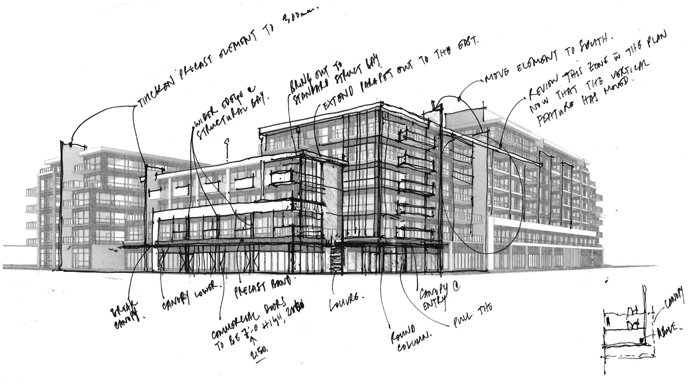 THICKEN PRECAST ELEMENT TO 300mm.
WIDER EDGE @
STRUCTURAL BAY.
BRING OUT TO
STANDARD STRUCT BAY
EXTEND PARAPET OUT TO THE EAST.
MOVE ELEMENT TO SOUTH.
REVIEW THIS ZONE IN THE PLAN
NOW THAT THE VERTICAL
FEATURE HAS MOVED.
?
BREAK
CANOPY.
CANOPY LOWER.
PRECAST BAND.
COMMERCIAL DOORS
TO BE HIGH,
2150
LOUVRE.
ROUND
COLUMN.
CANOPY @
ENTRY
PULL THE
CANOPY
ABOVE.